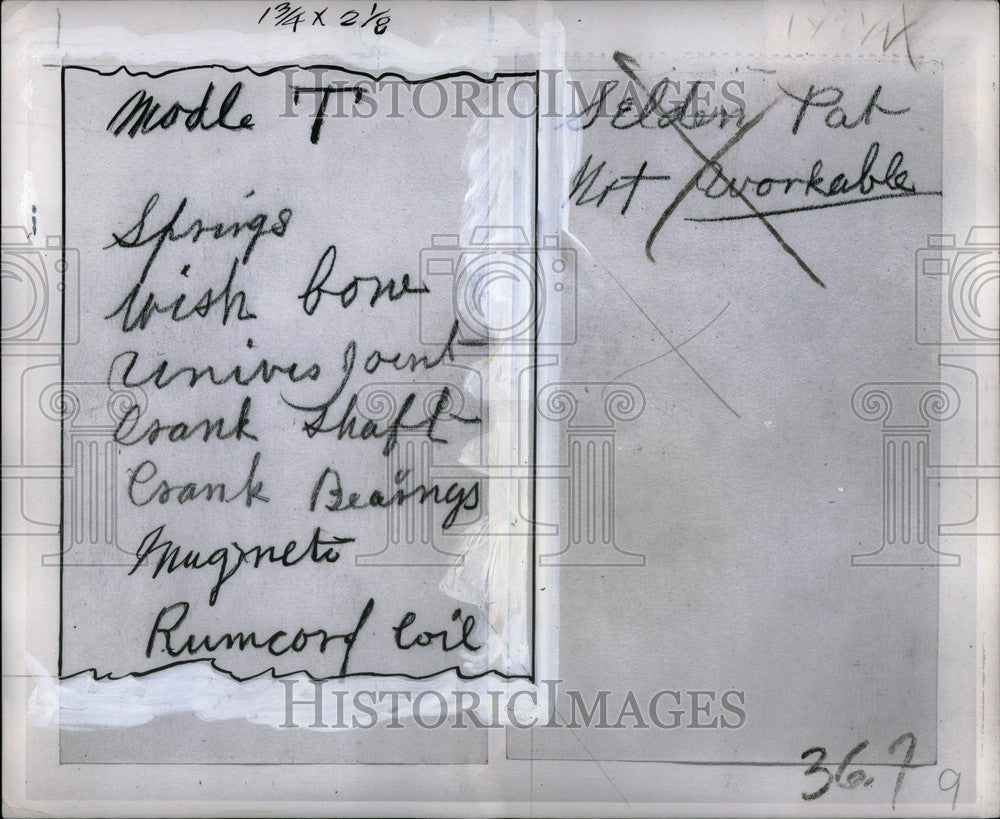 1 3/4 x 2 1/8
Modle T
Springs
Wish bone
Univers Joint
Crank Shaft
Crank Bearings
Mugneto
Rumcorf Coil
Selden Pat
Not workable
36.7
9
HISTORICIMAGES
HISTORICIMAGES
HISTORICIMAGES
HISTORICIMAGES